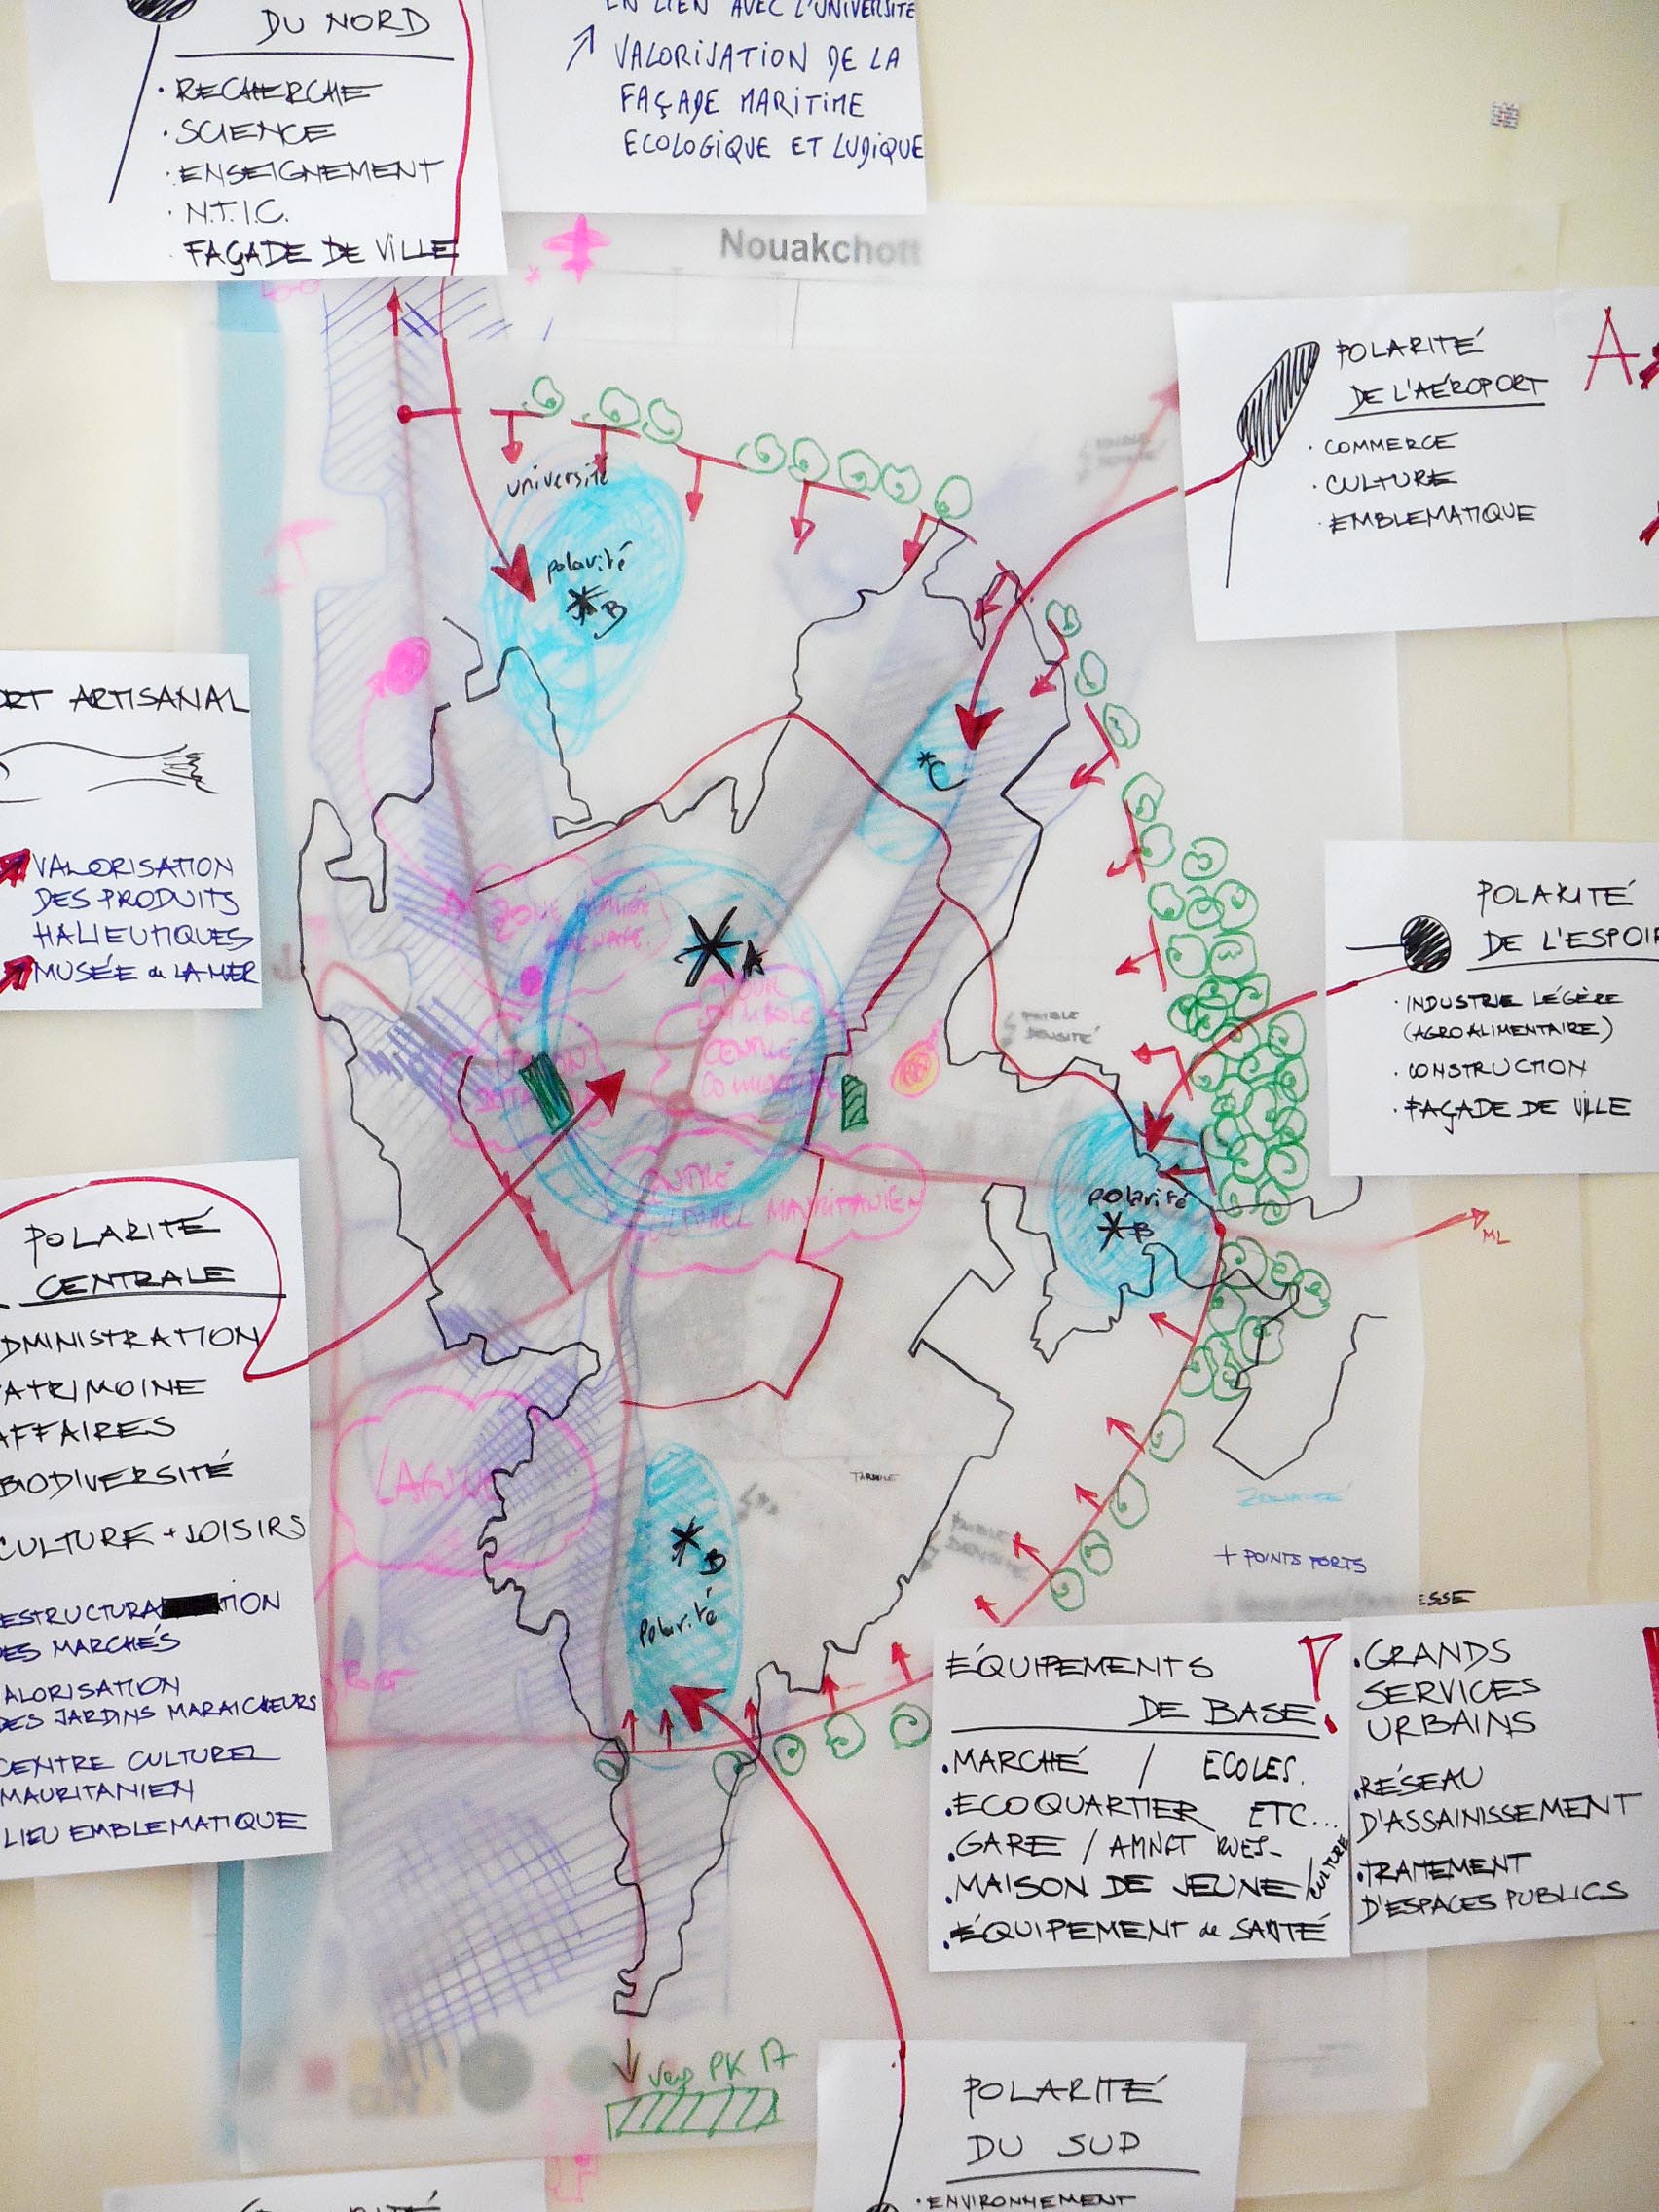 DU NORD
· RECHERCHE
· SCIENCE
· ENSEIGNEMENT
· N.T.I.C.
· FAÇADE DE VILLE
EN LIEN AVEC L'UNIVERSITÉ
↗ VALORISATION DE LA
FAÇADE MARITIME
ECOLOGIQUE ET LUDIQUE
Nouakchott
POLARITÉ
DE L'AÉROPORT
· COMMERCE
· CULTURE
· EMBLEMATIQUE
A
université
polarité
*B
*C
ORT ARTISANAL
VALORISATION
DES PRODUITS
HALIEUTIQUES
MUSÉE de LA MER
*A
CENTRE
CULTUREL MAURITANIEN
FAIBLE
DENSITÉ
POLARITÉ
DE L'ESPOIR
· INDUSTRIE LÉGÈRE
(AGROALIMENTAIRE)
· CONSTRUCTION
· FAÇADE DE VILLE
polarité
*B
ML
POLARITÉ
CENTRALE
DMINISTRATION
ATRIMOINE
AFFAIRES
BIODIVERSITÉ
CULTURE + LOISIRS
ESTRUCTURATION
DES MARCHÉS
ALORISATION
DES JARDINS MARAICHEURS
CENTRE CULTUREL
MAURITANIEN
LIEU EMBLEMATIQUE
LAGUNE
*B
Polarité
+ POINTS FORTS
ESSE
ÉQUIPEMENTS
DE BASE !
· MARCHÉ / ECOLES.
· ECOQUARTIER ETC...
· GARE / AMNGT RUES-
· MAISON DE JEUNE / CULTURE
· ÉQUIPEMENT de SANTÉ
· GRANDS
SERVICES
URBAINS
· RÉSEAU
D'ASSAINISSEMENT
· TRAITEMENT
D'ESPACES PUBLICS
vers PK 17
POLARITÉ
DU SUD
· ENVIRONNEMENT